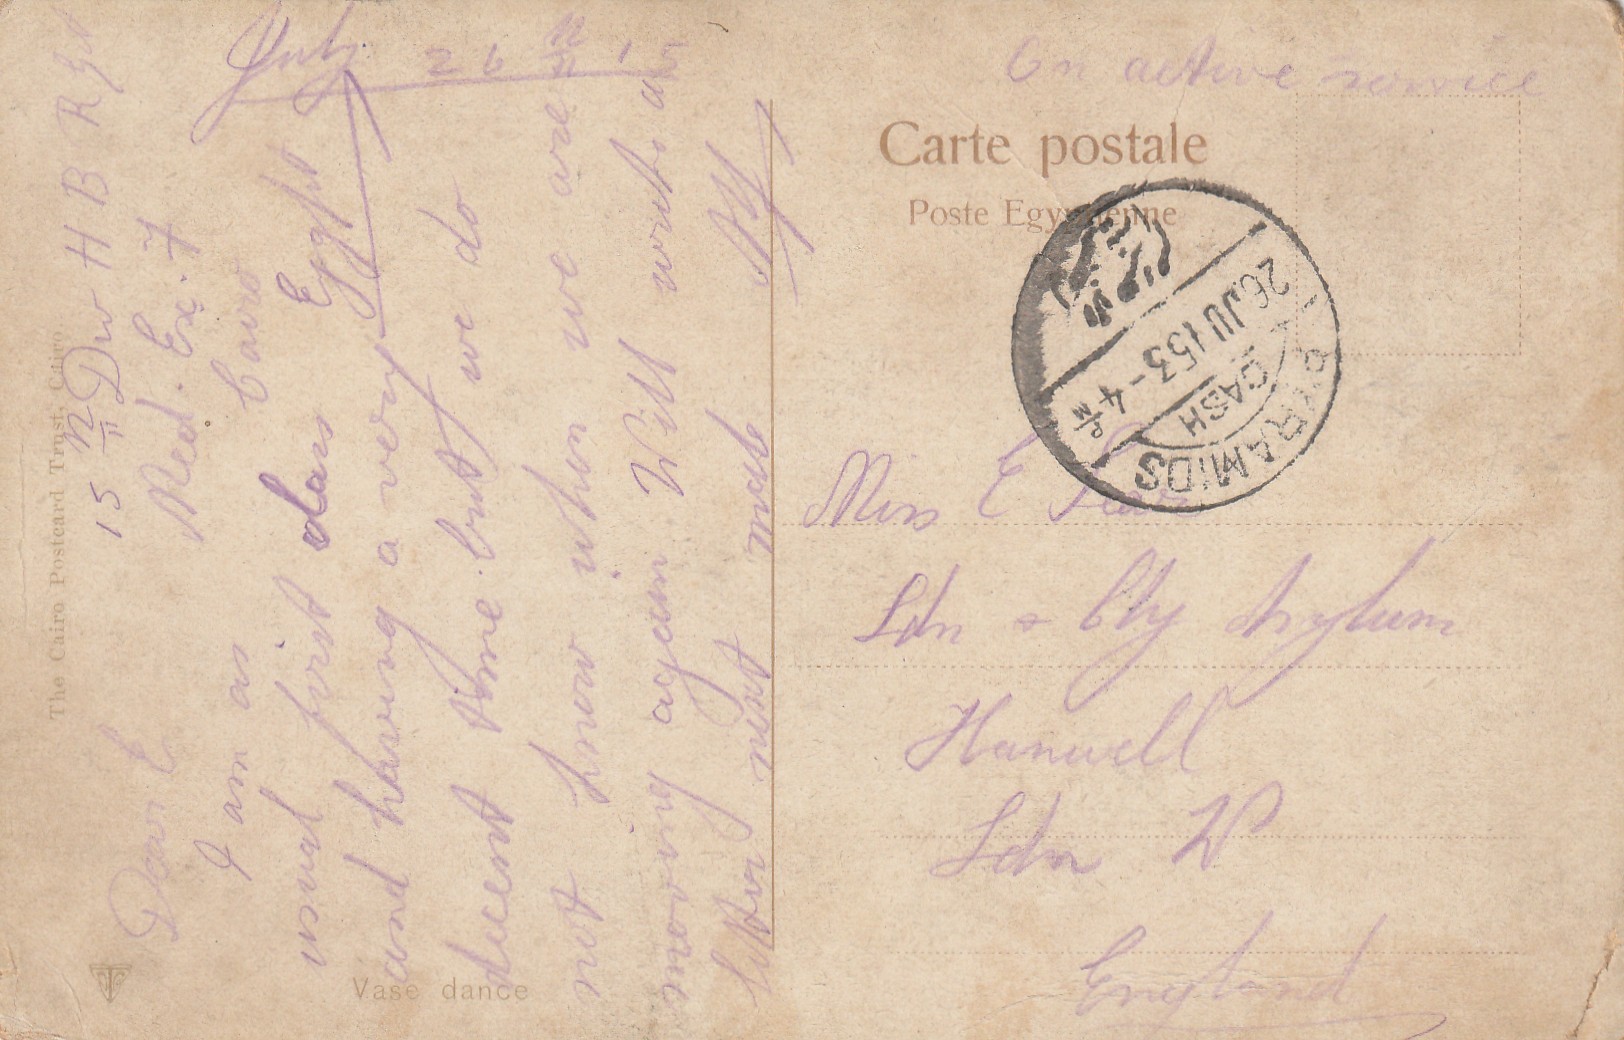 July 26 15
15 Div H B R
Med. Ex. 7
Cairo
Egypt
Dear E
I am as
usual first class
and having a very
decent time. but we do
not know when we are
moving again Will write a
letter next
The Cairo Postcard Trust, Cairo
Vase dance
On active service
Carte postale
Poste Egyptienne
PYRAMIDS
CASH
26.JU 15 3-4 PM
Miss E
Ldn & Cty Asylum
Hanwell
Ldn W
England